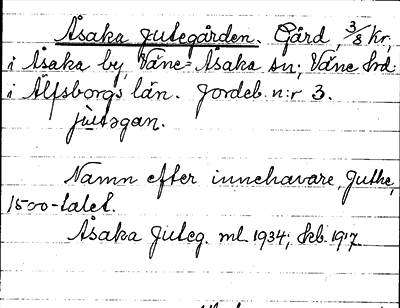 Åsaka Jutegården. Gård, 3/8 kr,
i Åsaka by, Väne-Åsaka sn; Väne hrd.
i Älfsborgs län. Jordeb. n:r 3.
jùtəgan.
Namn efter innehavare, Juthe,
1500-talet.
Åsaka Juteg. ml. 1934; Skb. 1917